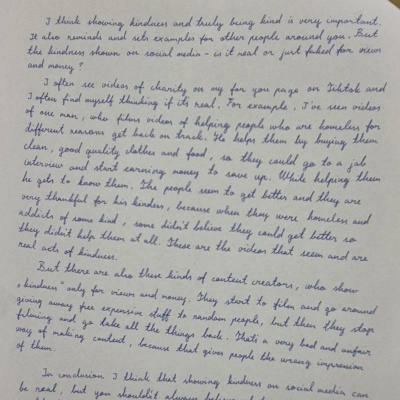 I think showing kindness and truly being kind is very important.
It also reminds and sets examples for other people around you. But
the kindness shown on social media - is it real or just faked for views
and money?
I often see videos of charity on my for you page on Tiktok and
I often find myself thinking if its real. For example, I've seen videos
of one man, who films videos of helping people who are homeless for
different reasons get back on track. He helps them by buying them
clean, good quality clothes and food, so they could go to a job
interview and start earning money to save up. While helping them
he gets to know them. The people seem to get better and they are
very thankful for his kindness, because when they were homeless and
addicts of some kind, some didn't believe they could get better so
they didn't help them at all. These are the videos that seem and are
real acts of kindness.
But there are also these kinds of content creators, who show
„kindness" only for views and money. They start to film and go around
giving away free expensive stuff to random people, but then they stop
filming and go take all the things back. Thats a very bad and unfair
way of making content, because that gives people the wrong impression
of them.
In conclusion I think that showing kindness on social media can
be real, but you shouldn't always believe